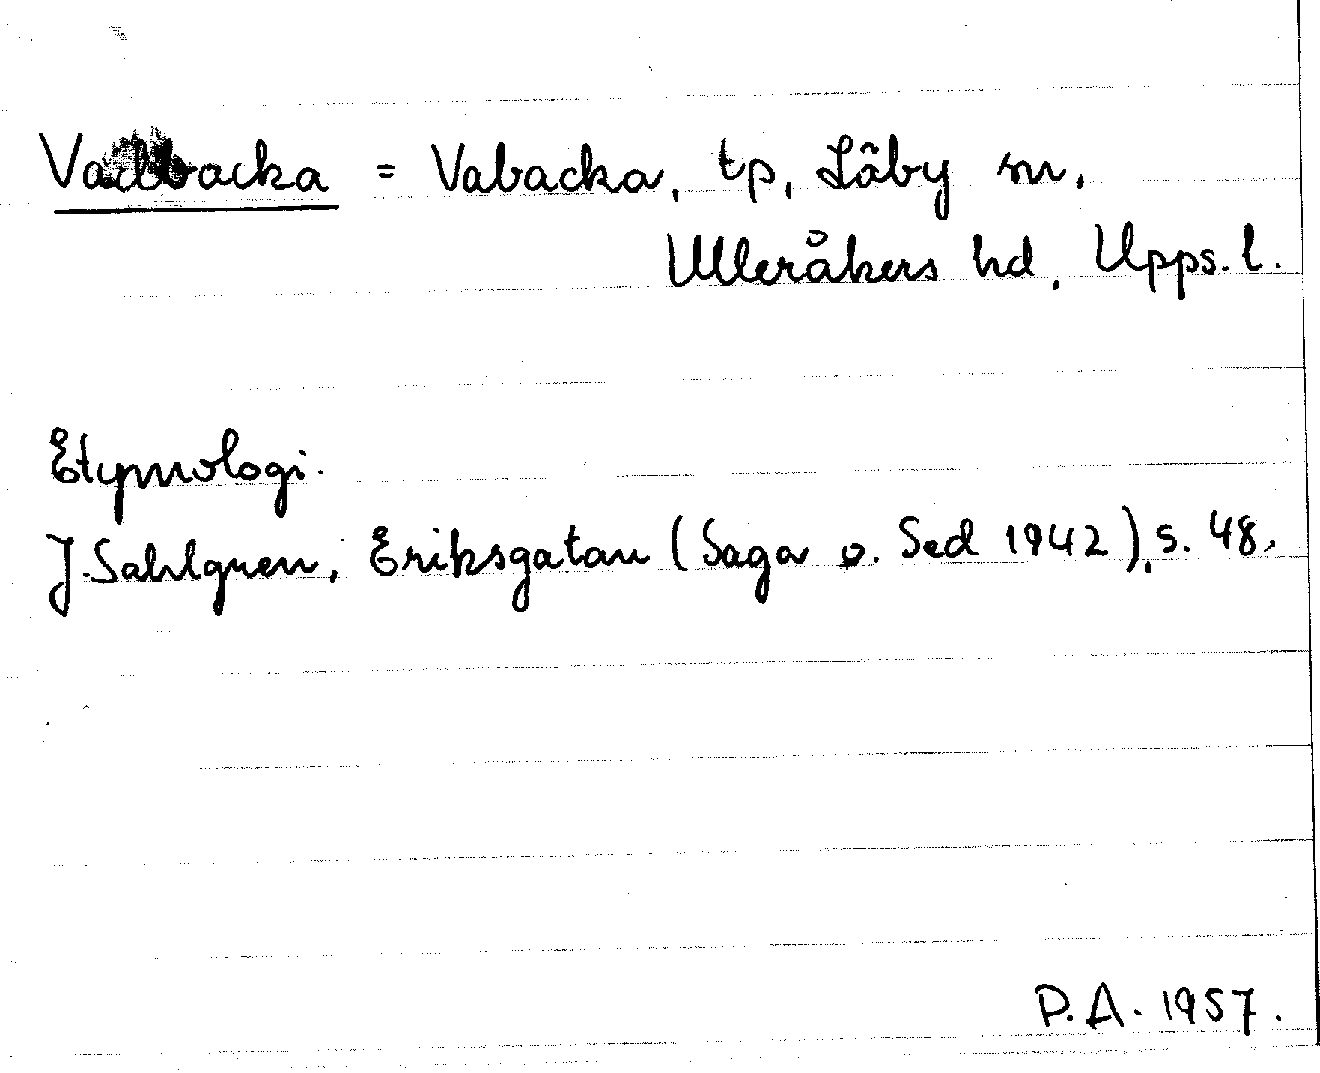 Vadbacka = Vabacka, tp, Läby sn,
Ulleråkers hd, Upps. l.
Etymologi.
J. Sahlgren, Eriksgatan (Saga o. Sed 1942), s. 48,
P. A. 1957.